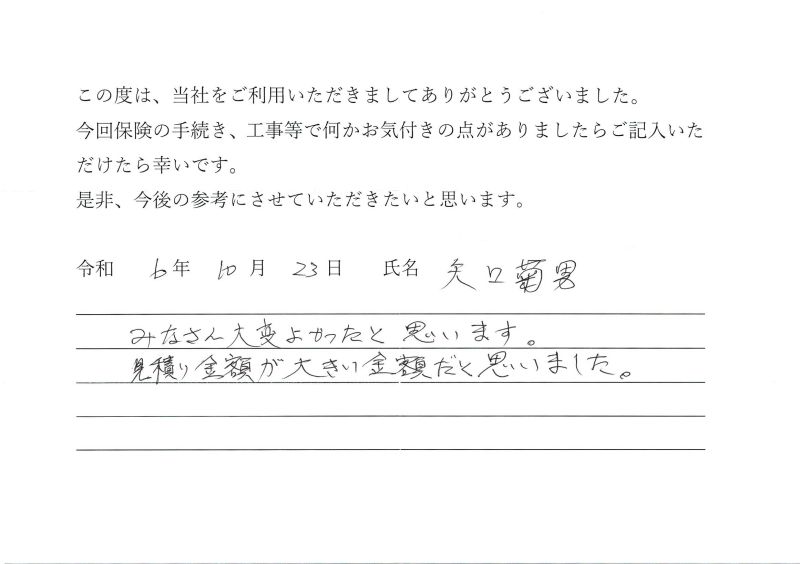 この度は、当社をご利用いただきましてありがとうございました。
今回保険の手続き、工事等で何かお気付きの点がありましたらご記入いた
だけたら幸いです。
是非、今後の参考にさせていただきたいと思います。
令和 6年 10月 23日 氏名 矢口菊男
みなさん大変よかったと思います。
見積り金額が大きい金額だと思いました。